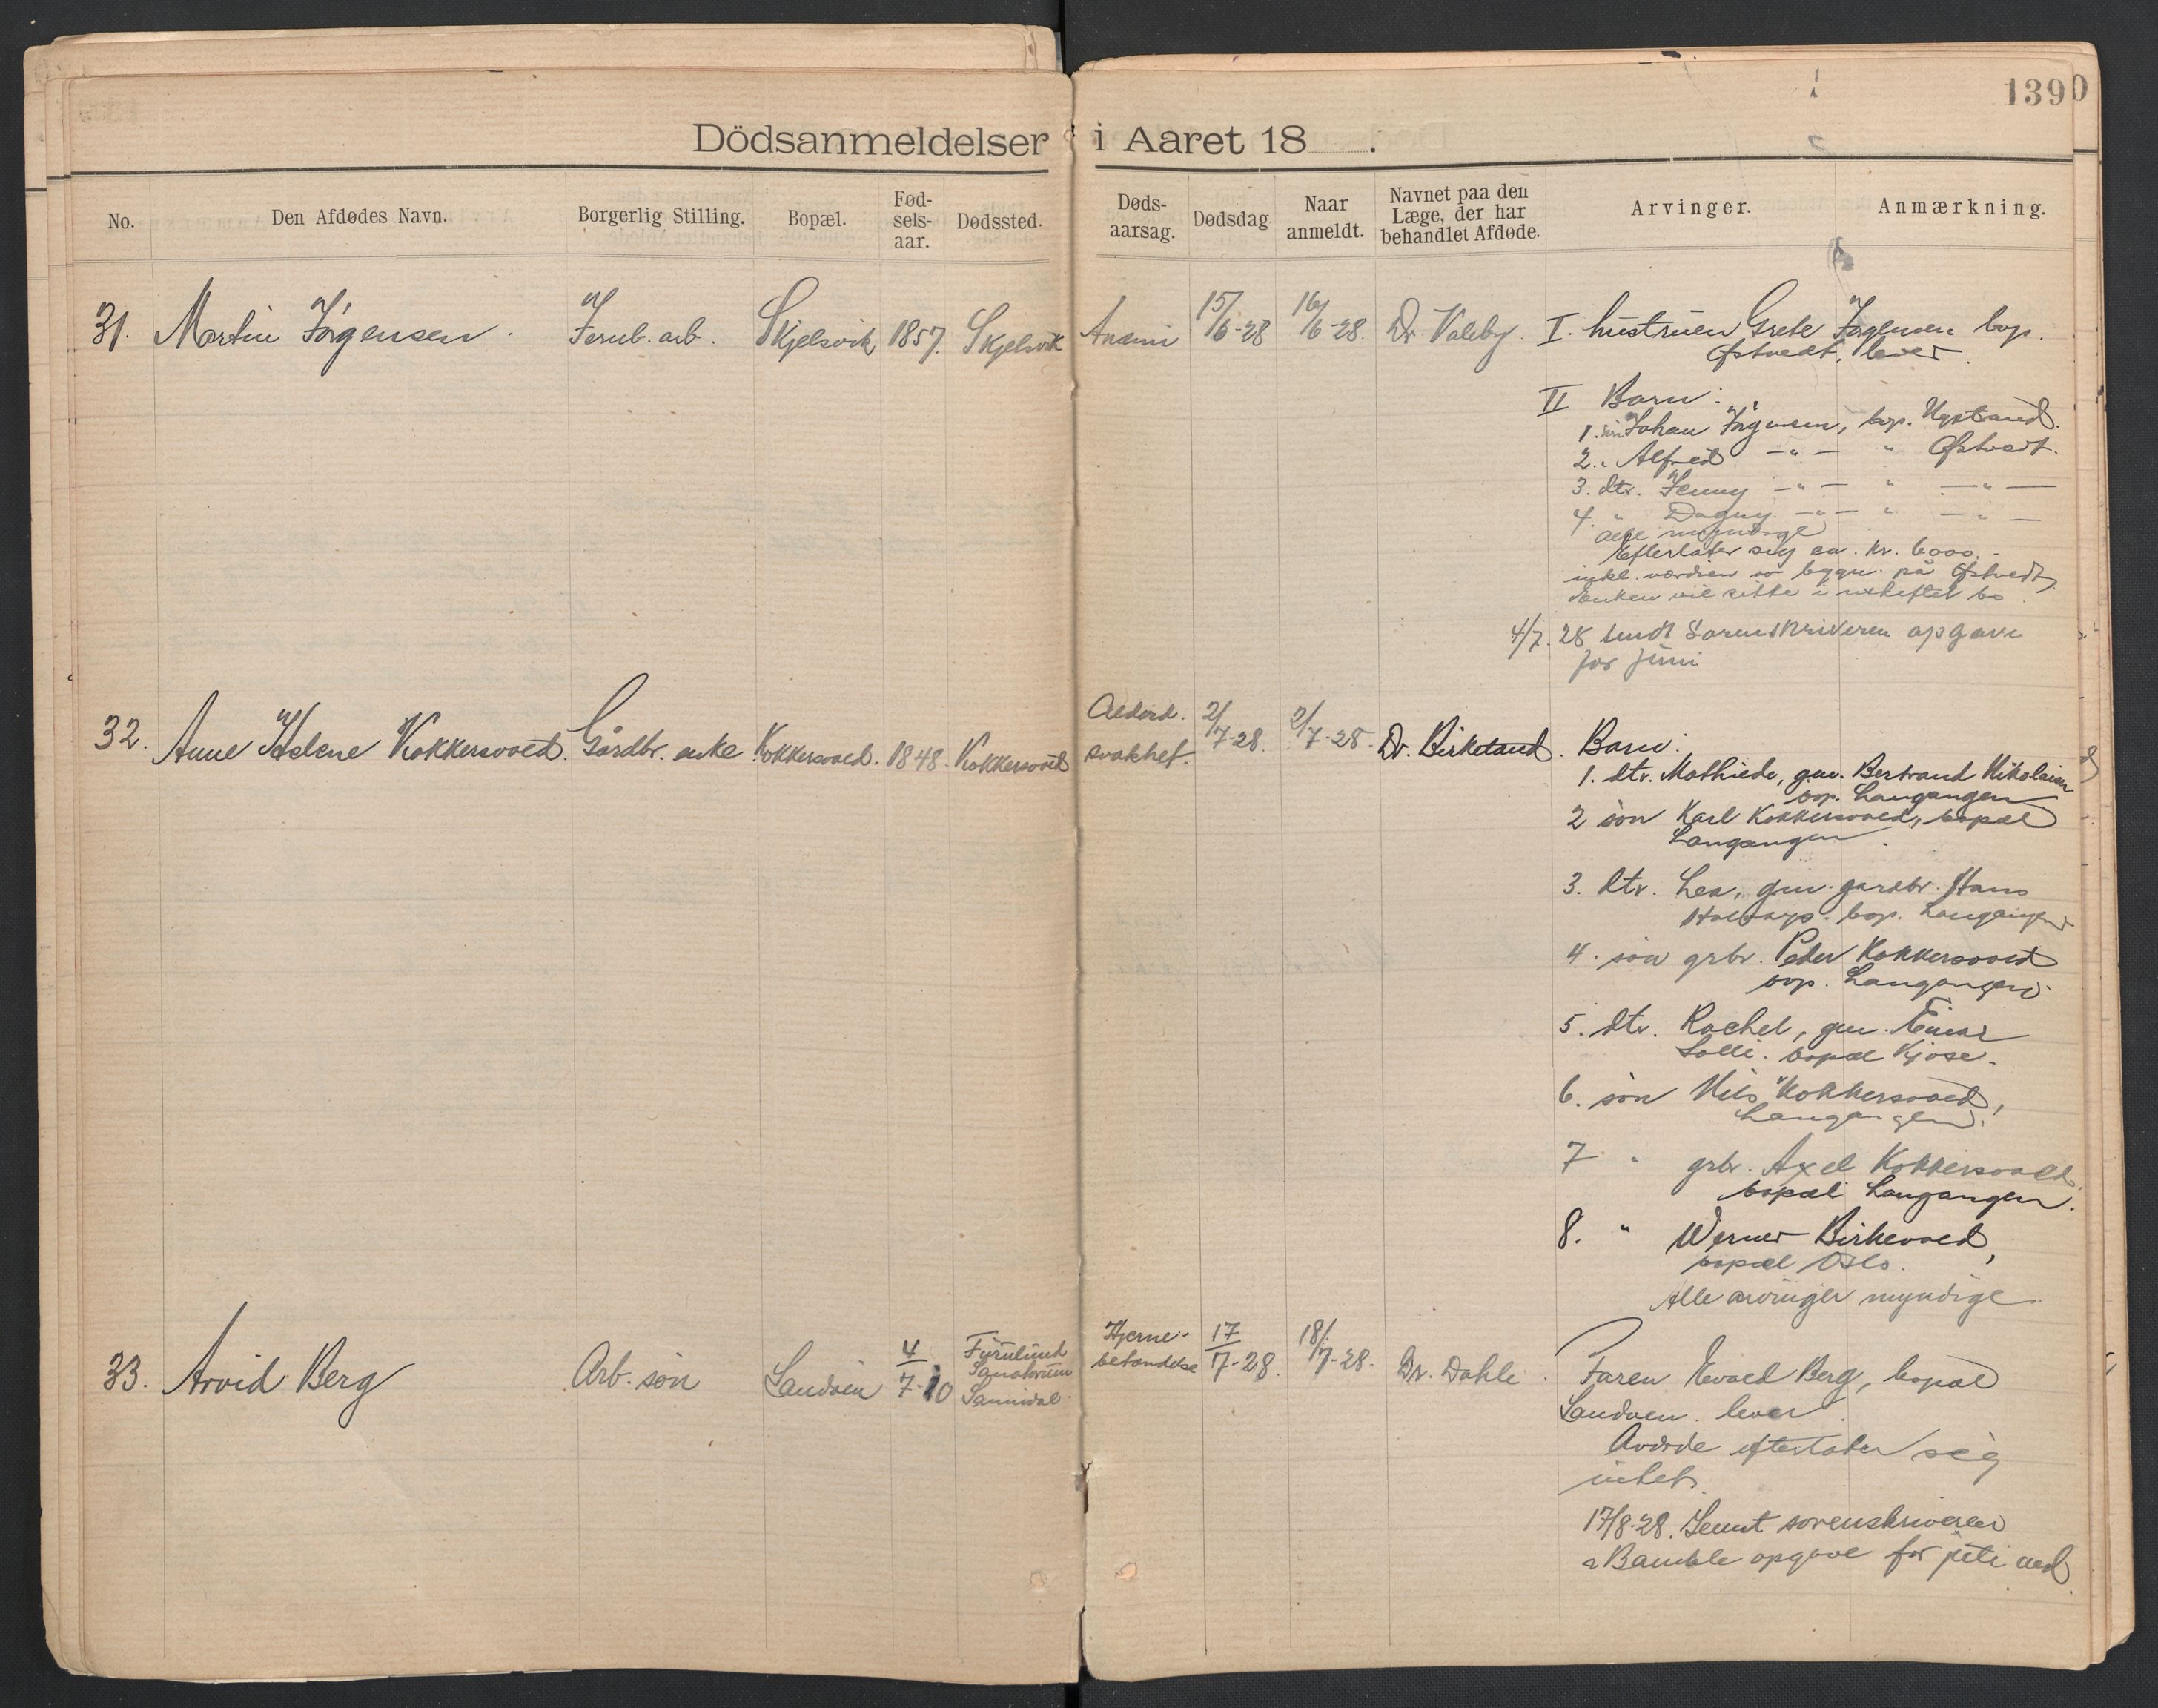 139
Dödsanmeldelser i Aaret 18 .
No. Den Afdødes Navn. Borgerlig Stilling. Bopæl. Fødselsaar. Dødssted. Dødsaarsag. Dødsdag Naar anmeldt. Navnet paa den Læge, der har behandlet Afdøde. Arvinger. Anmærkning.
31. Martin Jörgensen. Jernb. arb. Skjelsvik 1857. Skjelsvik Anæmi 15/6-28 16/6-28. Dr. Valeby. I. hustruen Grete Jörgensen bop.
Østvedt, lever.
II Barn:
1. sön Johan Jörgensen, bop. Nystrand.
2. " Alfred — " — " Østvedt.
3. dtr. Jenny — " — " — " —
4. " Dagny — " — " — " —
alle myndige
Efterlater sig ca. kr. 6000.-
inkl. værdien av bygn. på Østvedt,
Enken vil sitte i uskiftet bo
4/7. 28 sendt Sorenskriveren opgave
for juni
32. Anne Helene Kokkersvold. Gårdbr. enke Kokkersvold. 1848. Kokkersvold Alderd. svakhet. 2/7-28. 2/7-28. Dr. Birkeland. Barn:
1. dtr. Mathilde, gm. Bertrand Nikolaisen
bop. Langangen
2 sön Karl Kokkersvold, bopæl
Langangen.
3. dtr. Lea, gm. gardbr. Hans
bop. Langangen
4. sön grbr. Peder Kokkersvold
bop. Langangen.
5. dtr. Rachel, gm. Einar
Solli. bopæl Kjose.
6. sön Nils Kokkersvold,
Langangen.
7 " grbr. Axel Kokkersvold.
bopæl Langangen.
8. " Werner Birkevold,
bopæl Oslo.
Alle arvinger myndige.
33. Arvid Berg Arb. sön Sandöen 4/7-10 Furulund Sanatorium Sannidal. Hjernebetændelse 17/7-28. 18/7-28. Dr. Dahle. Faren Evald Berg, bopæl
Sandöen. lever.
Avdöde efterlater sig
intet.
17/8-28. Sendt sorenskriveren
i Bamble opgave for juli md.